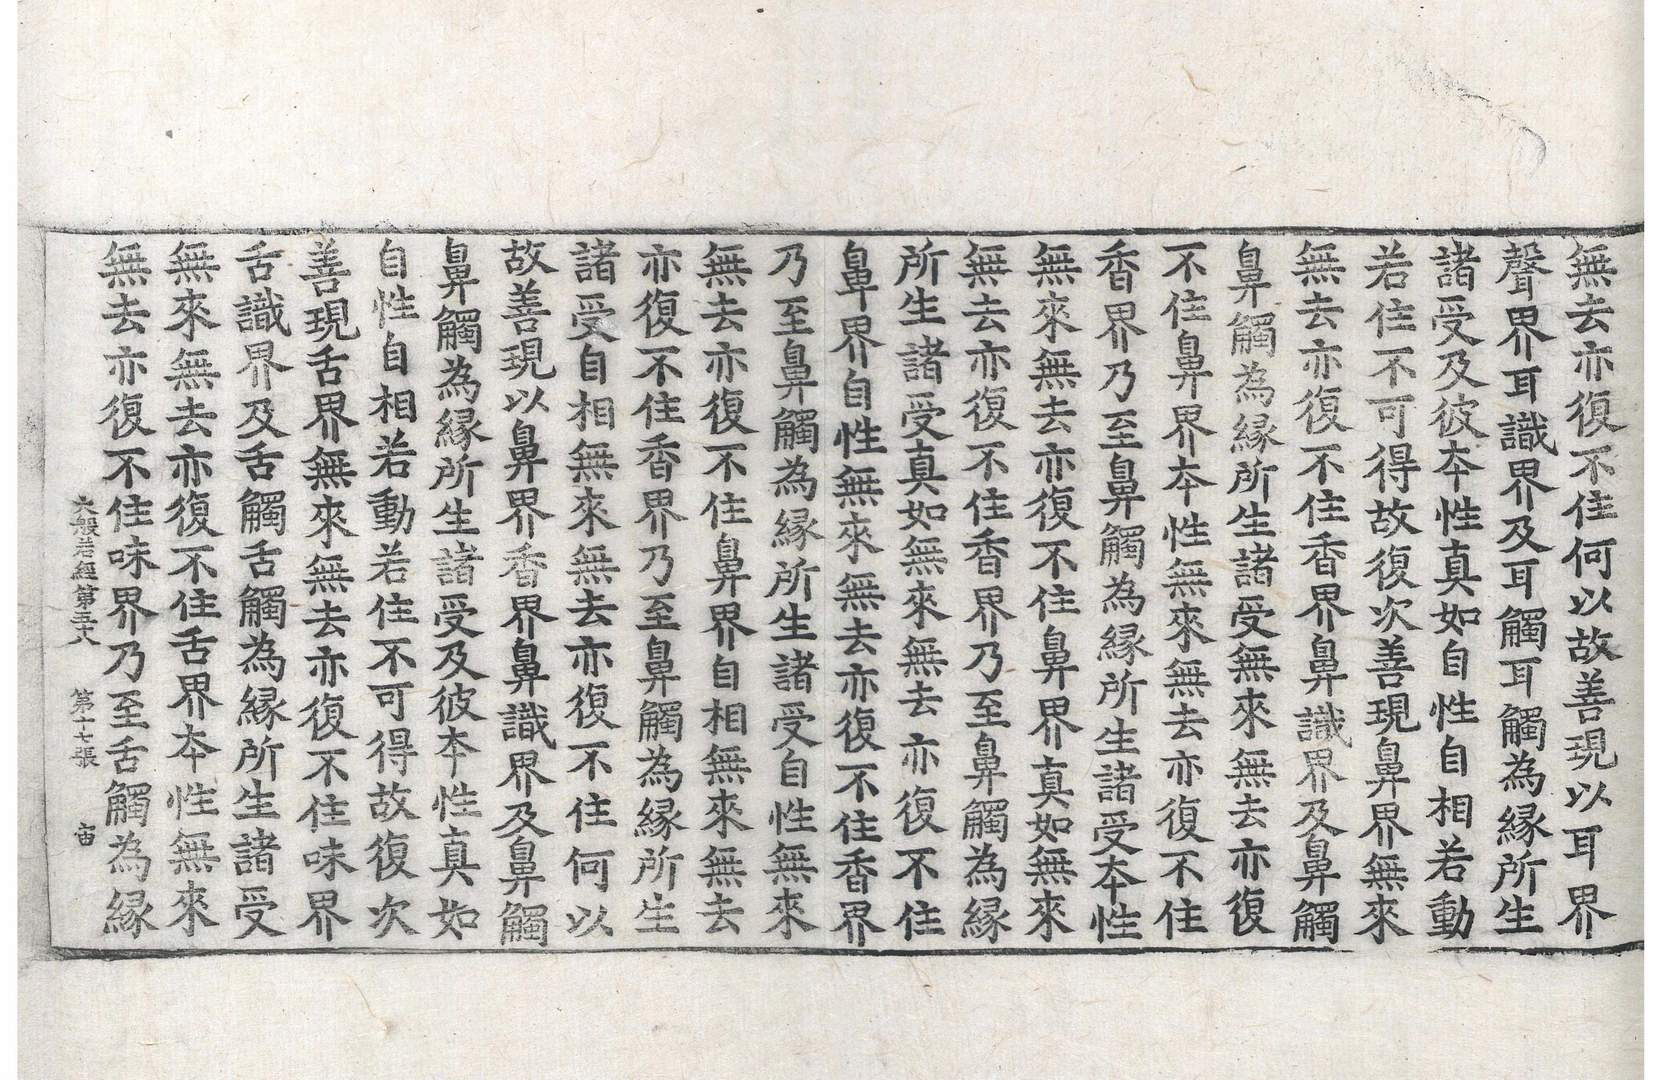 無去亦復不住何以故善現以耳界
聲界耳識界及耳觸耳觸為縁所生
諸受及彼夲性真如自性自相若動
若住不可得故復次善現鼻界無來
無去亦復不住香界鼻識界及鼻觸
鼻觸為縁所生諸受無來無去亦復
不住鼻界夲性無來無去亦復不住
香界乃至鼻觸為縁所生諸受夲性
無來無去亦復不住鼻界真如無來
無去亦復不住香界乃至鼻觸為縁
所生諸受真如無來無去亦復不住
鼻界自性無來無去亦復不住香界
乃至鼻觸為縁所生諸受自性無来
無去亦復不住鼻界自相無來無去
亦復不住香界乃至鼻觸為縁所生
諸受自相無來無去亦復不住何以
故善現以鼻界香界鼻識界及鼻觸
鼻觸為縁所生諸受及彼夲性真如
自性自相若動若住不可得故復次
善現舌界無來無去亦復不住味界
舌識界及舌觸舌觸為縁所生諸受
無來無去亦復不住舌界夲性無來
無去亦復不住味界乃至舌觸為縁
大般若經第五十八 第十七張 宙